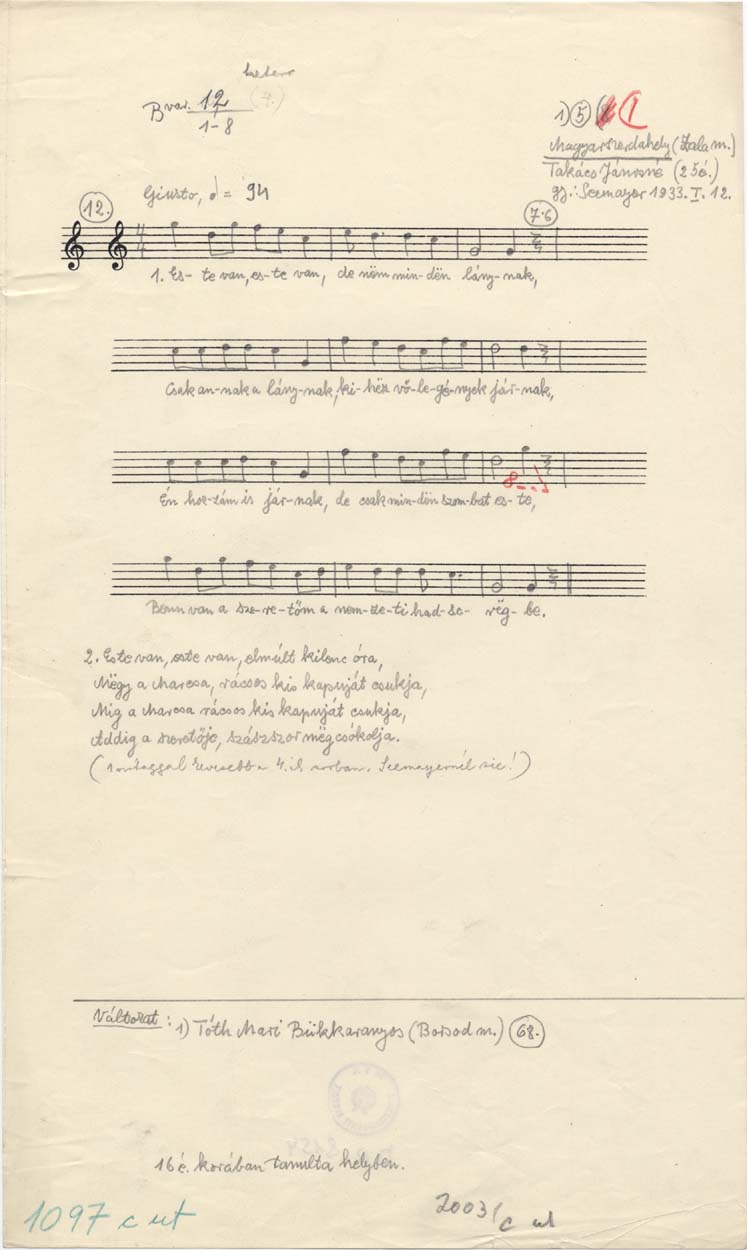 B var. 12
1-8
1) 5 I
Magyarszerdahely (Zala m.)
Takács Jánosné (25 é.)
gy.: Seemayer 1933. I. 12.
12.
Giusto, = 94
7-6
1. Es- te van, es- te van, de nëm min-dën lány-nak,
Csak an-nak a lány-nak, ki-hëz vő-le-gé-nyek jár-nak,
8
Én hoz-zám is jár-nak, de csak min-dën szom-bat es- te,
Benn van a sze-re-tőm a nem-ze-ti had-se- rëg- be.
2. Este van, este van, elmúlt kilenc óra,
Mëgy a Marcsa, rácsos kis kapuját csukja,
Mig a Marcsa rácsos kis kapuját csukja,
Addig a szeretője, százszor mëgcsókolja.
(1 szótaggal kevesebb a 4.ik sorban. Seemayernél sic!)
Változat: 1) Tóth Mari Bükkaranyos (Borsod m.) 68.
16 é. korában tanulta helyben.
1097 c ut
2003/c ut